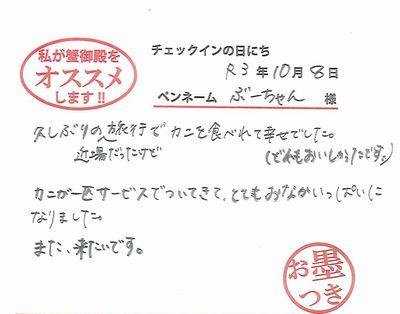 私が蟹御殿を
オススメ
します!!
チェックインの日にち
R3年10月8日
ペンネーム ぶーちゃん 様
久しぶりの旅行でカニを食べれて幸せでした。
近場だったけど (どれもおいしかったです。)
カニが一匹サービスでついてきて、とてもおなかいっぱいに
なりました。
また、来たいです。
お墨
つき